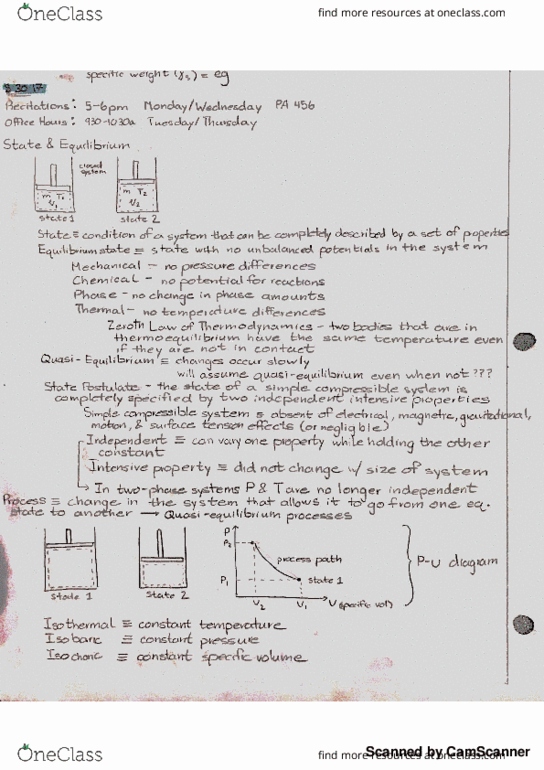 OneClass
find more resources at oneclass.com
specific weight (γs) = eg
8 30 17
Recitations: 5-6pm Monday/Wednesday PA 456
Office Hours: 930-1030a Tuesday/Thursday
State & Equilibrium
closed system
m T1 V1
m T2 V2
state 1
state 2
State ≡ condition of a system that can be completely described by a set of properties
Equilibrium state ≡ state with no unbalanced potentials in the system
Mechanical - no pressure differences
Chemical - no potential for reactions
Phase - no change in phase amounts
Thermal - no temperature differences
Zeroth Law of Thermodynamics - two bodies that are in
thermoequilibrium have the same temperature even
if they are not in contact
Quasi-Equilibrium ≡ changes occur slowly
will assume quasi-equilibrium even when not ???
State Postulate - the state of a simple compressible system is
completely specified by two independent intensive properties
Simple compressible system ≡ absent of electrical, magnetic, gravitational,
motion, & surface tension effects (or negligible)
Independent ≡ can vary one property while holding the other
constant
Intensive property ≡ did not change w/ size of system
→ In two-phase systems P & T are no longer independent
Process ≡ change in the system that allows it to go from one eq.
state to another → Quasi-equilibrium processes
state 1
state 2
P
P2
P1
process path
state 1
V2
V1
V (specific vol)
P-υ diagram
Isothermal ≡ constant temperature
Isobaric ≡ constant pressure
Isochoric ≡ constant specific volume
OneClass
find more resources at oneclass.com
Scanned by CamScanner